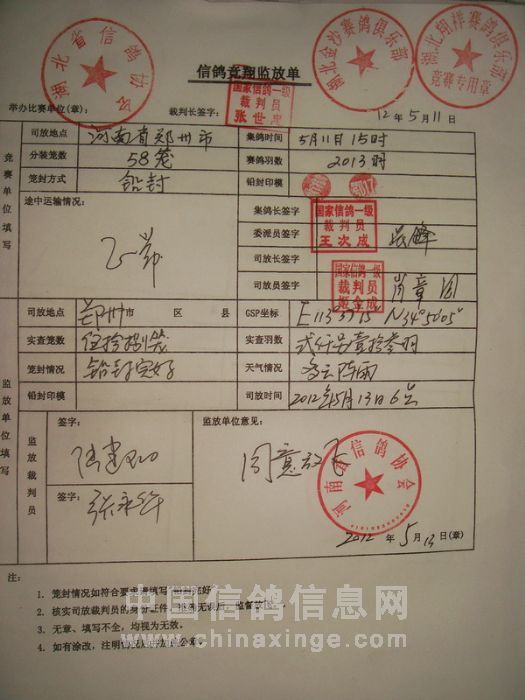 信鸽竞翔监放单
湖北省信鸽协会
湖北金沙赛鸽俱乐部
竞赛专用章
举办比赛单位(章): 裁判长签字: 12年5月11日
国家信鸽一级
裁判员
张世忠
竞赛单位填写
司放地点 河南省郑州市 集鸽时间 5月11日15时
分装笼数 58笼 赛鸽羽数 2013羽
笼封方式 铅封 铅封印模
途中运输情况: 正常
集鸽长签字
委派员签字
国家信鸽一级
裁判员
王次成
司放长签字
司放员签字
国家信鸽一级
裁判员
监放单位填写
司放地点 郑州市 区 县 GSP坐标
实查笼数 伍拾捌笼 实查羽数 贰仟另壹拾叁羽
笼封情况 铅封完好 天气情况 多云阵雨
铅封印模 司放时间 2012年5月13日6点
监放裁判员
签字:
签字:
监放单位意见:
同意放飞
河南省信鸽协会
2012年5月13日(章)
注:
1. 笼封情况如符合要求请填写
2. 核实司放裁判员的身份证件
3. 无章、填写不全,均视为无效。
4. 如有涂改,注明情况
中国信鸽信息网
www.chinaxinge.com